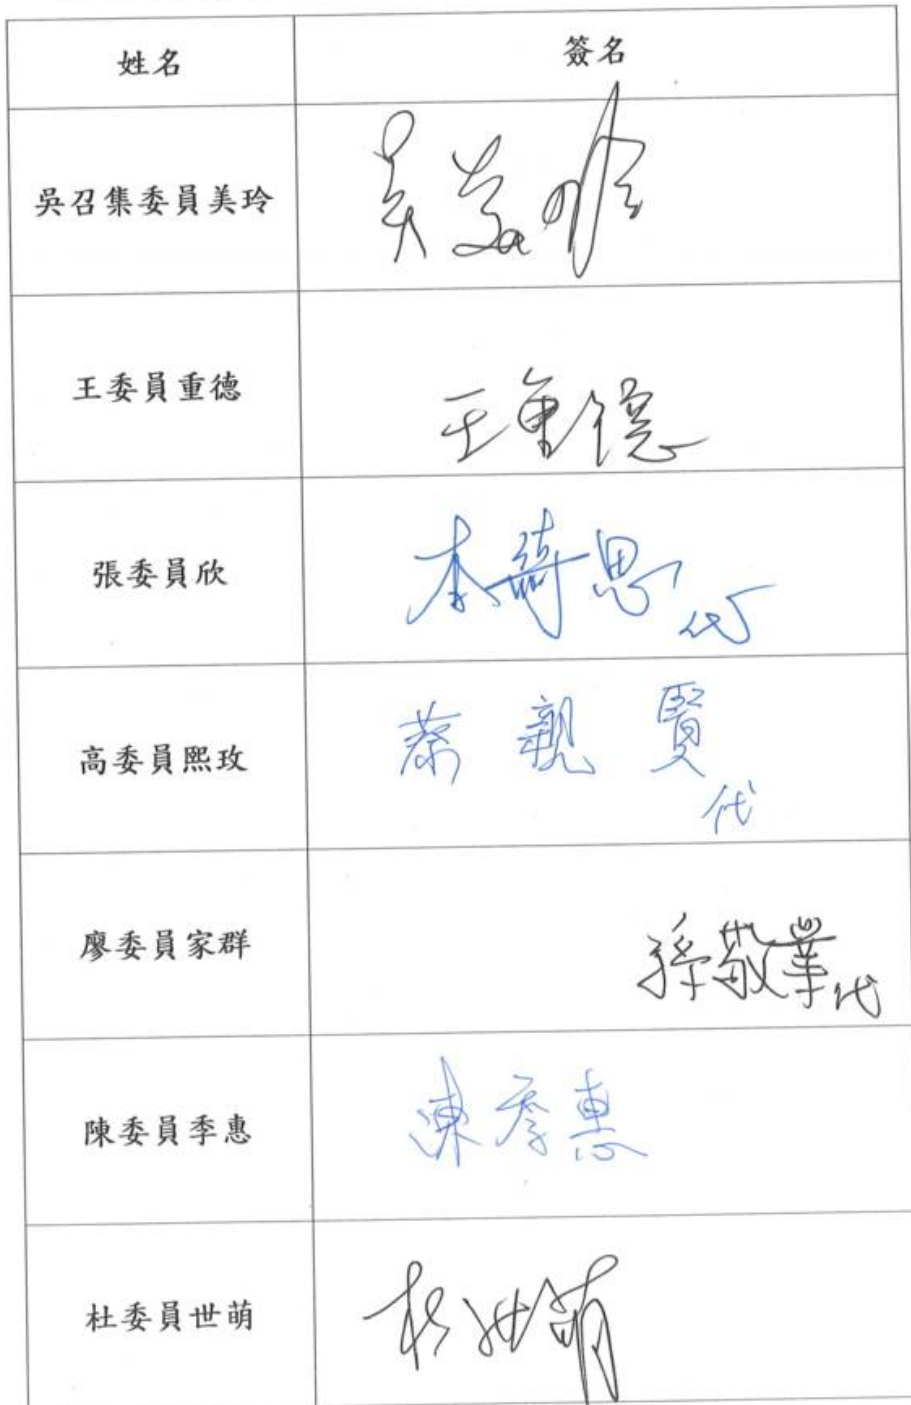 姓名 簽名
吳召集委員美玲 吳美玲
王委員重德 王重德
張委員欣 李綺思 代
高委員熙玫 蔡親賢
代
廖委員家群 孫敬業代
陳委員季惠 陳季惠
杜委員世萌 杜世萌